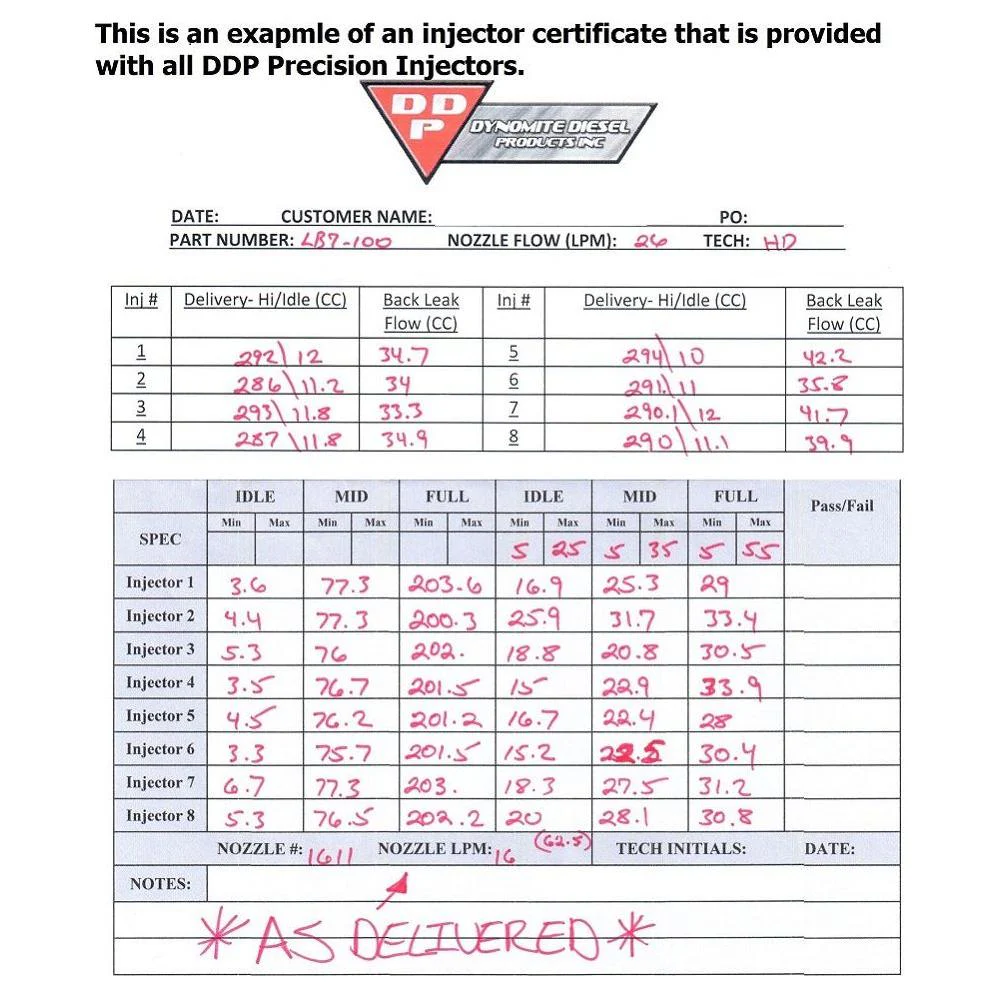 This is an exapmle of an injector certificate that is provided
with all DDP Precision Injectors.
DD
P
DYNOMITE DIESEL
PRODUCTS INC
DATE: CUSTOMER NAME: PO:
PART NUMBER: LB7-100 NOZZLE FLOW (LPM): 26 TECH: HD
Inj # Delivery- Hi/Idle (CC) Back Leak Flow (CC) Inj # Delivery- Hi/Idle (CC) Back Leak Flow (CC)
1 292\12 34.7 5 294\10 42.2
2 286\11.2 34 6 291\11 35.8
3 293\11.8 33.3 7 290.1\12 41.7
4 287\11.8 34.9 8 290\11.1 39.9
IDLE MID FULL IDLE MID FULL Pass/Fail
Min Max Min Max Min Max Min Max Min Max Min Max
SPEC 5 25 5 35 5 55
Injector 1 3.6 77.3 203.6 16.9 25.3 29
Injector 2 4.4 77.3 200.3 25.9 31.7 33.4
Injector 3 5.3 76 202. 18.8 20.8 30.5
Injector 4 3.5 76.7 201.5 15 22.9 33.9
Injector 5 4.5 76.2 201.2 16.7 22.4 28
Injector 6 3.3 75.7 201.5 15.2 22.5 30.4
Injector 7 6.7 77.3 203. 18.3 27.5 31.2
Injector 8 5.3 76.5 202.2 20 28.1 30.8
NOZZLE #: 1611 NOZZLE LPM: 16 (62.5) TECH INITIALS: DATE:
NOTES:
*AS DELIVERED*